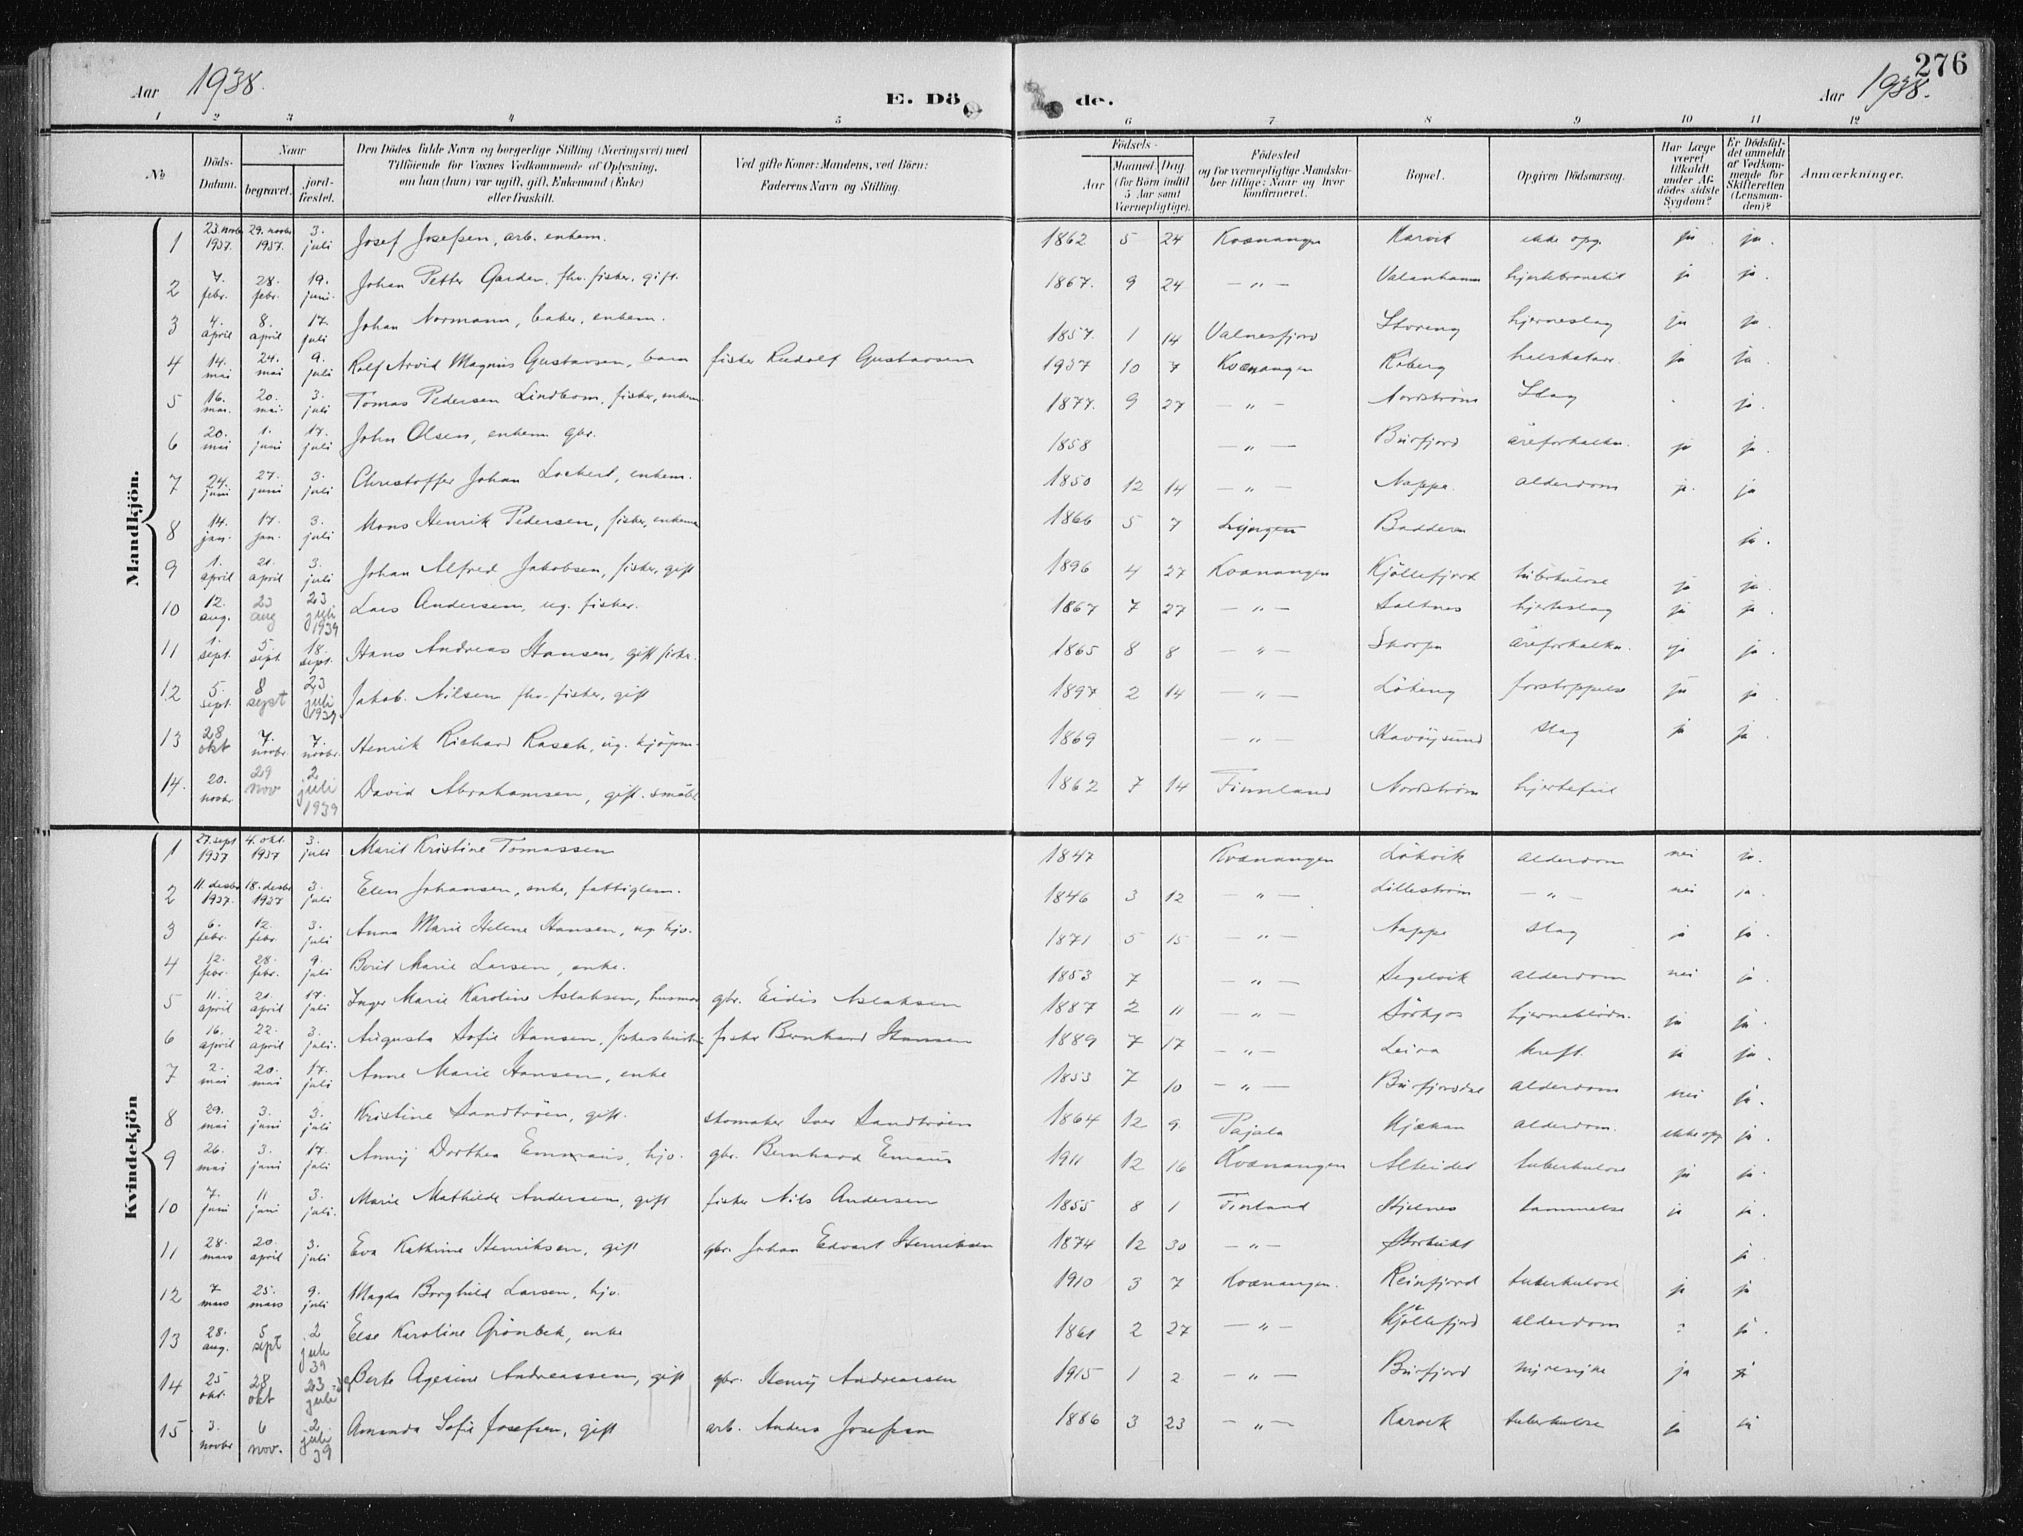 276
Aar 1938. E. Dö de. Aar 1938.
1 2 3 4 5 6 7 8 9 10 11 12
№ Döds-Datum. Naar begravet. jord-fæstet. Den Dödes fulde Navn og borgerlige Stilling (Næringsvei) med Tilföiende for Voxnes Vedkommende af Oplysning, om han (hun) var ugift, gift, Enkemand (Enke) eller fraskilt. Ved gifte Koner: Mandens, ved Börn: Faderens Navn og Stilling. Födsels- Aar Maaned Dag (for Börn indtil 5 Aar samt Værnepligtige). Födested og for værnepligtige Mandskaber tillige: Naar og hvor konfirmeret. Bopæl. Opgiven Dödsaarsag. Har Læge været tilkaldt under Afdödes sidste Sygdom? Er Dödsfaldet anmeldt af Vedkommende for Skifteretten (Lensmanden)? Anmærkninger.
Mandkjön.
1 23. novbr 1937. 29. novbr 1937. 3. juli Josef Josefsen, arb. enkem. 1862 5 24 Kvænangen Karvik ikke opg. ja. ja.
2 7. febr. 28. febr. 19. juni. Johan Petter Garden, fhv. fisker, gift. 1867. 9 24 — " — Valanhamn ja ja.
3 4. april 8. april 17. juli Johan Normann, baker, enkem. 1857. 1 14 Valnesfjord Storeng hjerneslag ja ja.
4 14. mai 24. mai 9. juli Rolf Arvid Magnus Gustavsen, barn fisker Rudolf Gustavsen 1937 10 7 Kvænangen Röberg halskatarr. ja ja.
5 16. mai. 20. mai. 3. juli Tomas Pedersen Lindbom, fisker, enkem 1877. 9 27 — " — Nordström Slag ja.
6 20. mai 1. juni 17. juli John Olsen, enkem. gbr. 1858 — " — Burfjord åreforkalkn. ja ja.
7 24. juni 27. juni 3. juli Christoffer Johan Lockert, enkem. 1850 12 14 — " — Nappe. alderdom ja. ja
8 14. jan. 17. jan. 3. juli Mons Henrik Pedersen, fisker, enkem 1866 5 7 Lyngen Badderen ja.
9 1. april 21. april 3. juli Johan Alfred Jakobsen, fisker, gift 1896 4 27 Kvænangen Kjöllefjord tuberkulose ja ja.
10 12. aug. 23 aug 23 juli 1939 Lars Andersen, ug. fisker. 1867 7 27 — " — Saltnes hjerteslag ja ja.
11 1. sept. 5. sept. 18. sept. Hans Andreas Hansen, gift fisker. 1865 8 8 — " — Skorpa åreforkalkn. ja ja.
12 5. sept. 8 sept 23 juli 1939 Jakob Nilsen fhv. fisker, gift 1897 2 14 — " — Lökeng forstoppelse ja ja.
13 28 okt 7. novbr. 7. novbr. Henrik Richard Rasch, ug. kjöpm. 1869 — " — Havöysund slag ja ja.
14. 20. novbr 29 nov 2 juli 1939 David Abrahamsen, gift. småbr. 1862 7 14 Finnland Nordström hjertefeil
Kvindekjön
1 27. sept 1937 4. okt. 1937 3. juli Marit Kristine Tomassen 1847 Kvænangen Lökvik alderdom nei ja.
2 11. desbr 1937. 18. desbr 1937 3. juli Elen Johansen, enke, fattiglem. 1846 3 12 — " — Lilleström — " nei ja.
3 6. febr. 12. febr. 3. juli Anna Marie Helene Hansen, ug. hjv. 1871 5 15 — " — Nappe slag ja ja.
4 12. febr. 28. febr. 9. juli Berit Marie Larsen, enke. 1853 7 — " — Segelvik alderdom nei ja.
5 11. april 21. april 17. juli Inger Marie Karoline Aslaksen, husmor gbr. Eidis Aslaksen 1887 2 11 — " — Sörkjos hjerneblödn. ja ja.
6 16. april 22. april 3. juli. Augusta Sofie Hansen, fiskershustru fisker Bernhard Hansen 1889 7 17 — " — Leira kreft. ja ja.
7 2. mai 20. mai 17. juli Anne Marie Hansen, enke 1853 7 10 — " — Burfjorddal alderdom nei ja.
8 29. mai 3. juni 3. juli Kristine Sandtröen, gift. skomaker Iver Sandtröen 1864 12 9 Pajala Kjækan alderdom. ikke opg ja.
9 26. mai 3. juni 17. juli Anny Dorthea Emmaus, hjv. gbr. Bernhard Emaus 1911 12 16 Kvænangen Alteidet tuberkulose ja ja.
10 7. juni 11 juni 3. juli. Marie Mathilde Andersen, gift fisker Nils Andersen 1855 8 1 Finland Stjelnes lammelse ja ja.
11 28. mars 20. april 3. juli Eva Kathrine Henriksen, gift gbr. Johan Edvart Henriksen 1874 12 30 — " — Storbukt ja
12 7 mars 25. mars 9. juli Magda Borghild Larsen, hjv. 1910 3 7 Kvænangen. Reinfjord tuberkulose ja ja
13 28. aug. 5 sept 2 juli 39 Else Karoline Grönbek, enke 1861 2 27 — " — Kjöllefjord alderdom ? ja.
14 25 okt. 28 okt 23 juli Berte Agesine Andreassen, gift gbr. Henry Andreassen 1915 1 2 — " — Burfjord nyresyke ja ja
15. 3. novbr 6 nov. 2 juli 39 Amanda Sofie Josefsen, gift arb. Anders Josefsen 1886 3 23 — " — Karvik tuberkulose ja ja